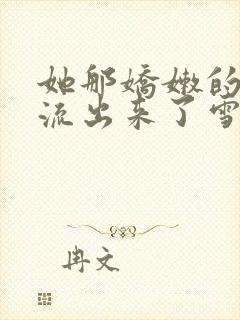 她那嬌嫩的
流出来了雪
冉文